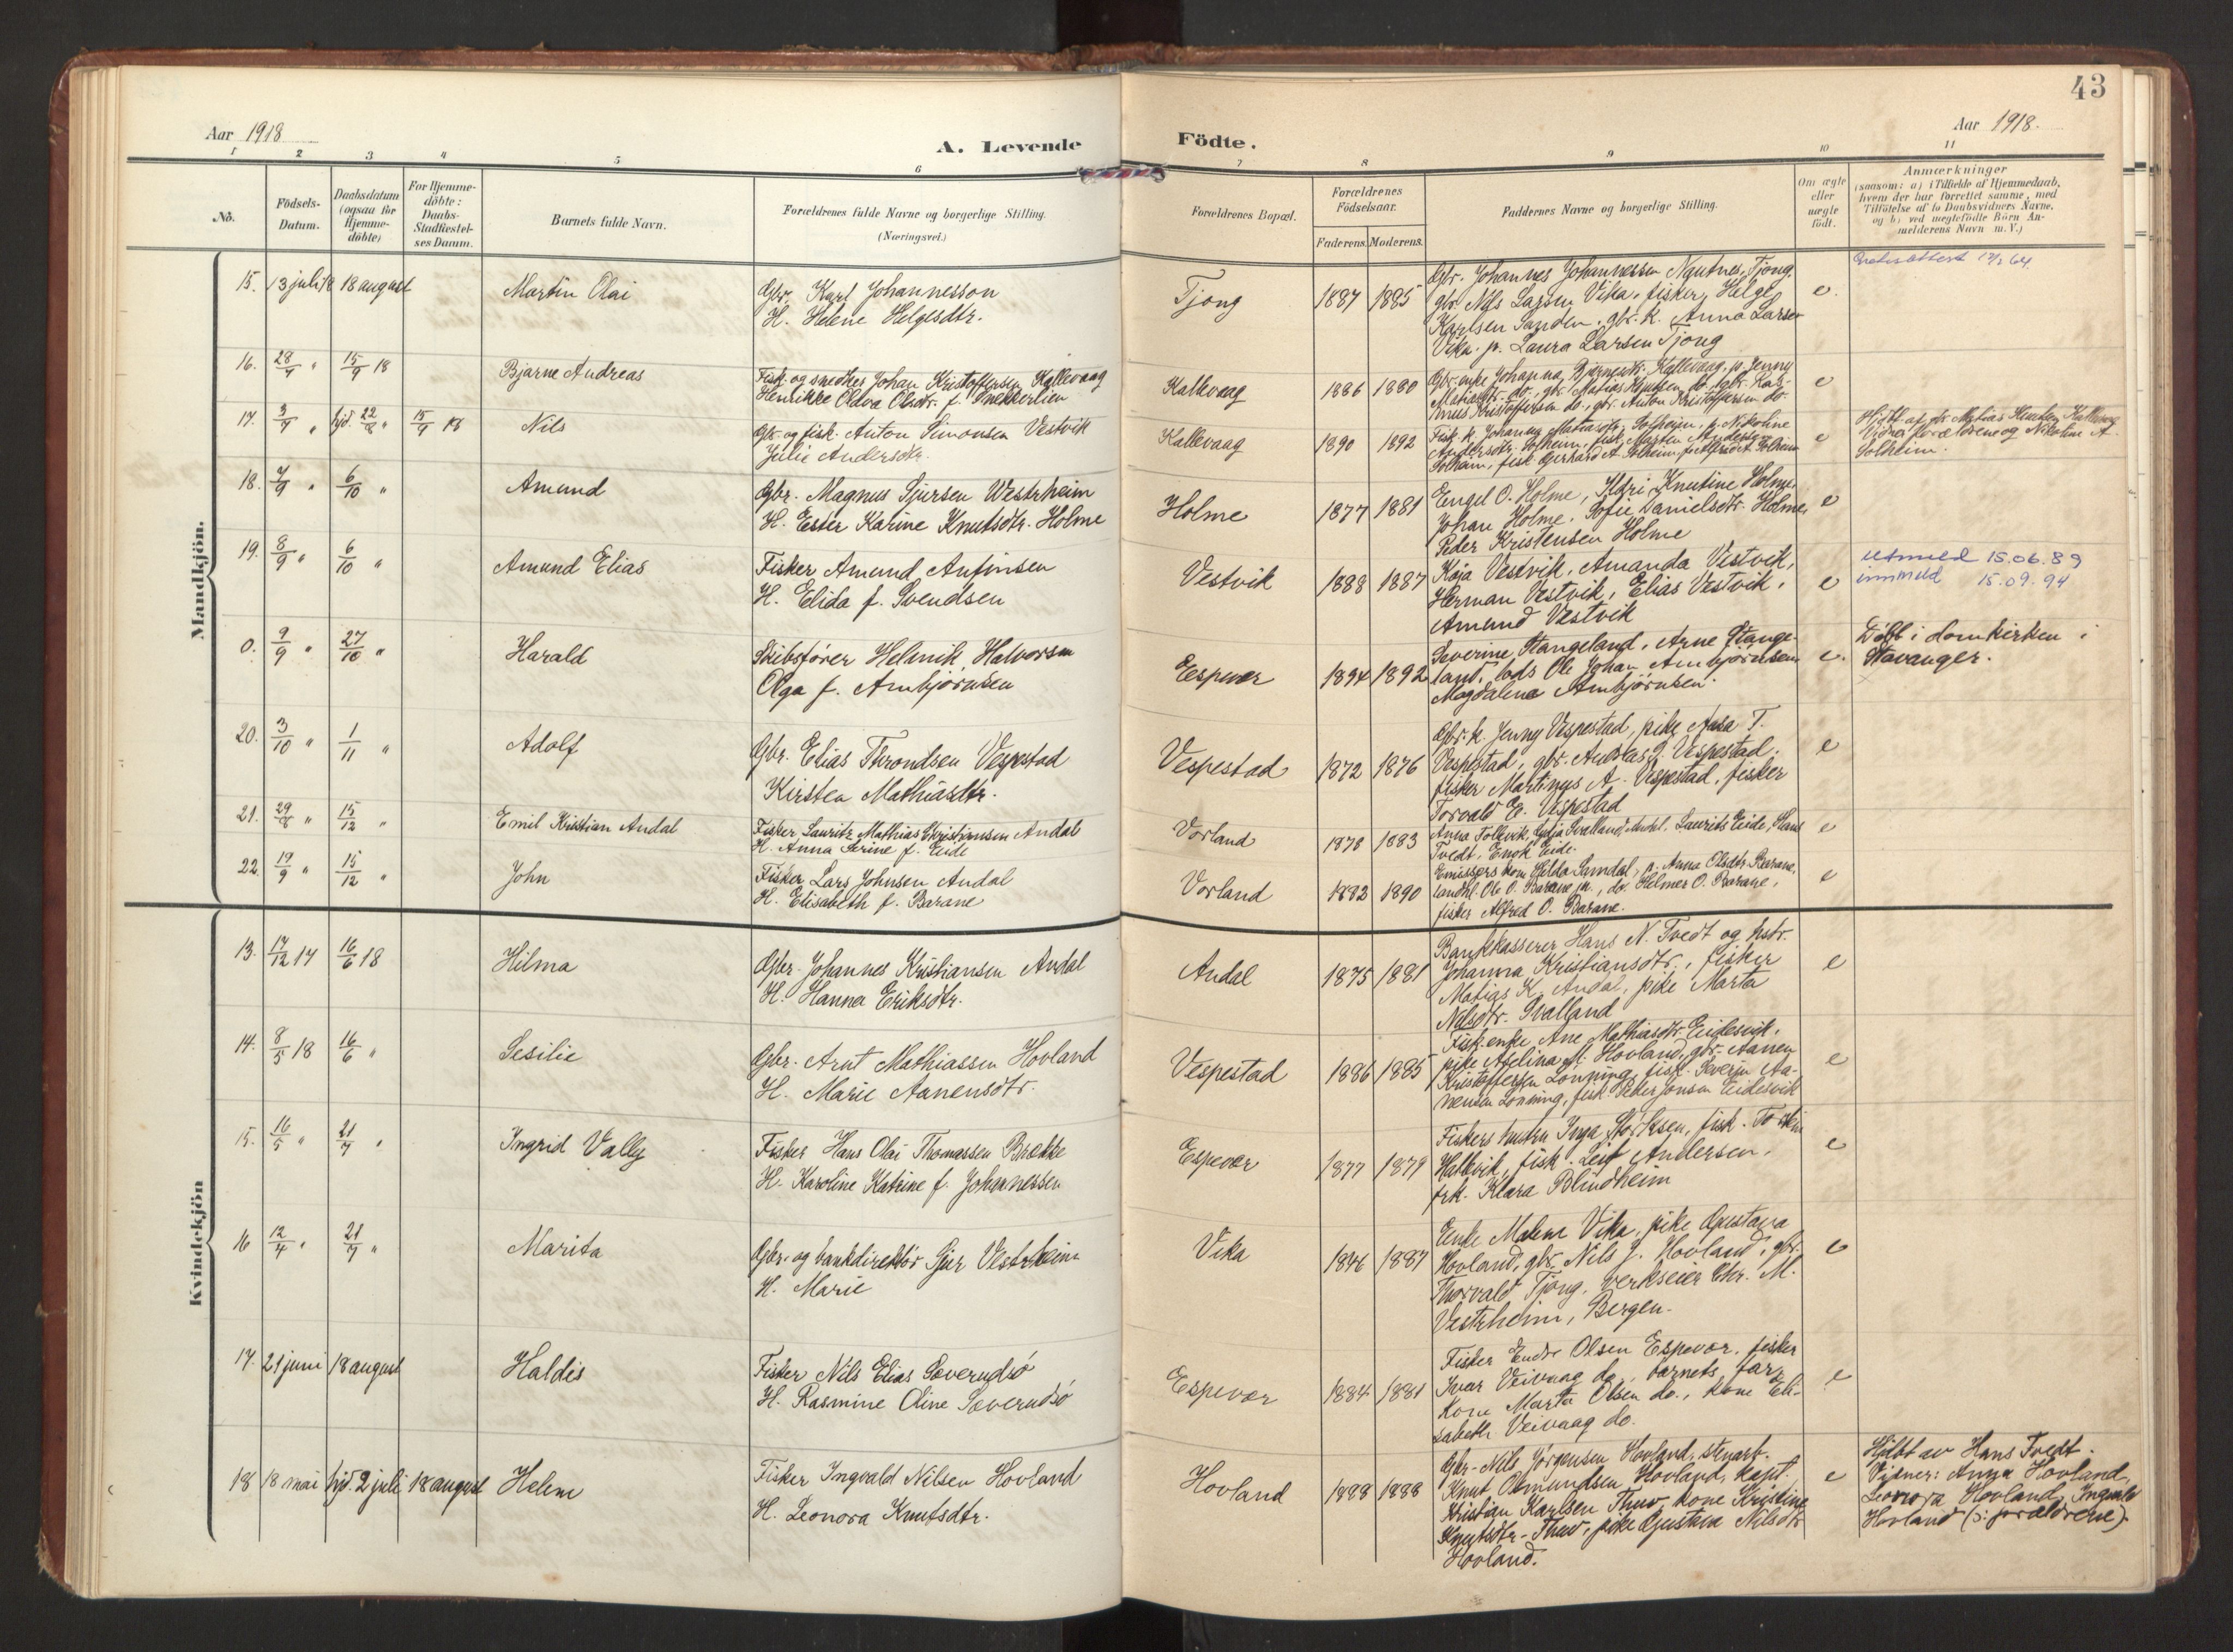 43
Aar 1918
A. Levende
Födte.
Aar 1918.
1 2 3 4 5 6 7 8 9 10 11
No.
Födsels-
Datum.
Daabsdatum
(ogsaa for
Hjemme-
döbte)
For Hjemme-
döbte:
Daabs-
Stadfæstel-
ses Datum.
Barnets fulde Navn.
Forældrenes fulde Navne og borgerlige Stilling.
(Næringsvei.)
Forældrenes Bopæl.
Forældrenes
Födselsaar.
Faderens. Moderens.
Faddernes Navne og borgerlige Stilling.
Om ægte
eller
uægte
födt.
Anmærkninger
(saasom: a) i Tilfælde af Hjemmedaab,
hvem der har forrettet samme, med
Tilföielse af to Daabsvidners Navne,
og b) ved uægtefödte Börn An-
melderens Navn m. V.)
Mandkjön.
15. 13 juli 18 18 august
Martin Olai
Gbr. Karl Johannesson
H. Helene Helgesdtr.
Tjong
1887 1885
Gbr. Johannes Johannessen Nautnes, Tjong,
gbr. Nils Larsen Vika, fisker Helge
Karlsen Sanden, gbr. k. Anna Larsen
Vika. p. Laura Larsen Tjong
e.
16. 28/7 " 15/9 18
Bjarne Andreas
Fisk. og snedker Johan Kristoffersen Kallevaag
Henrikke Oldva Olsdtr. f.
Kallevaag
1886 1880
Gbr. enke Johanna Bjarnedtr. Kallevaag, p. Jenny
Matiasdtr. do., gbr. Matias Knutsen do., gbr. Ras-
mus Kristoffersen do., gbr. Anton Kristoffersen do.
e
17. 3/7 " hjd. 22/8 " 15/9 18
Nils
Gbr. og fisk. Anton Simonsen Vestvik
Julie Andersdtr.
Kallevaag
1890 1892
Fisk. k. Johanna Matiasdtr. Solheim, p. Nikoline
Andersdtr. Solheim, fisk. Marten Andersen
Solheim, fisk Gerhard A. Solheim, Alfred A. Solheim
e
Hjdbt af gbr. Matias Knutsen Kallevaag
Vidner forældrene og Nikoline A.
Solheim.
18. 7/9 " 6/10 "
Amund
Gbr. Magnus Sjursen Westrheim
H. Ester Karine Knutsdtr. Holme
Holme
1877 1881
Engel O. Holme, Ildri Knutine Holme,
Johan Holme, Sofie Danielsdtr. Holme,
Peder Kristensen Holme
e
19. 8/9 " 6/10 "
Amund Elias
Fisker Amund Anfinsen
H. Elida f. Svendsen
Vestvik
1888 1887
Kaja Vestvik, Amanda Vestvik,
Herman Vestvik, Elias Vestvik,
Amund Vestvik
e
utmeld 15.06.89
innmeld 15.09.94
0. 9/9 " 27/10 "
Harald
Skibsförer Helmik Halvorsen
Olga f. Arnbjörnsen
Espevær
1894 1892
Severine Stangeland, Arne Stange-
land, lods Ole Johan Arnbjörnsen
Magdalena Arnbjörnsen.
e.
Döbt i domkirken i
Stavanger.
20. 3/10 " 1/11 "
Adolf
Gbr. Elias Throndsen Vespestad
Kirsten Mathiasdtr.
Vespestad
1872 1876
Gbr. k. Jenny Vespestad, pike Aasa T.
Vespestad, gbr. Andreas J. Vespestad,
fisker Martinus A. Vespestad, fisker
Torvald E. Vespestad
e
21. 29/8 " 15/12 "
Emil Kristian Andal
Fisker Lauritz Mathias Christiansen Andal
H. Anna Serine f. Eide
Vorland
1878 1883
Anna Follevik, Lydia Svalland, Laurits Eide, Hans
Tvedt, Enok Eide.
e
22. 19/9 " 15/12 "
John
Fisker Lars Johnsen Andal
H. Elisabeth f. Barane
Vorland
1882 1890
Emissærs kone Hilda Sandal, p. Anna Olsdtr. Barane,
landhl. Ole O. Barane jr., do. Helmer O. Barane,
fisker Alfred O. Barane.
e
Kvindekjön
13. 17/12 17 16/6 18
Hilma
Gbr. Johannes Kristiansen Andal
H. Hanna Eriksdtr.
Andal
1875 1881
Bankkasserer Hans N. Tvedt og hstr.
Johanna Kristiansdtr., fisker
Matias K. Andal, pike Marta
Nilsdtr. Svalland
e
14. 8/5 18 16/6 "
Sesilie
Gbr. Arnt Mathiassen Hovland
H. Marie Aanensdtr.
Vespestad
1886 1885
Fisk. enke Ane Mathiasdtr. Eidesvik,
pike Aselina M. Hovland, gbr. Aanen
Kristoffersen Lönning, fisk. Severin Aa-
nensen Lönning, fisk. Peder Jonsen Eidesvik
e
15. 16/5 " 21/7 "
Ingrid Vally
Fisker Hans Olai Thomassen Brække
H. Karoline Katrine f. Johannessen
Espevær
1877 1879
Fiskers hustru Inga Störksen, fisk.
Hallvik, fisk. Leif Andersen,
frk. Klara Blindheim
e
16 12/4 " 21/7 "
Marita
Gbr. og bankdirektör Sjur Vestrheim
H. Marie
Vika
1876 1887
Enke Malene Vika, pike Gustava
Hovland, gbr. Nils J. Hovland, gbr.
Thorvald Tjong, verkseier Chr. M.
Vestrheim, Bergen.
e
17. 21 juni 18 august
Haldis
Fisker Nils Elias Sæverudsö
H. Rasmine Oline Sæverudsö
Espevær
1884 1881
Fisker Endre Olsen Espevær, fisker
Ivar Veivaag do., barnets far,
Kone Marta Olsen do., kone Eli-
sabeth Veivaag do.
e
18 18 mai hjd. 2 juli 18 august
Helene
Fisker Ingvald Nilsen Hovland
H. Leonora Knutsdtr.
Hovland
1888 1888
Gbr. Nils Jørgensen Hovland, stenarb.
Knut Osmundsen Hovland, kapt.
Kristian Karlsen Thuv, kone Kristine
Knutsdtr. Thuv, pike Gustava Nilsdtr
Hovland.
e
Hjdbt av Hans Tvedt.
Vidner: Anna Hovland,
Leonora Hovland, Ingvald
Hovland (o: forældrene).